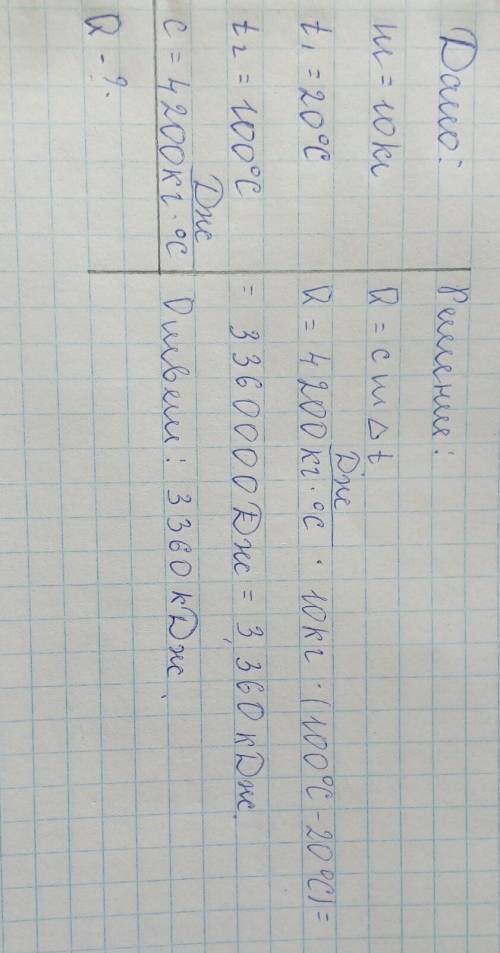 Дано:
m = 10 кг
t₁ = 20°C
t₂ = 100°C
c = 4200 Дж/кг·°C
Q - ?
Решение:
Q = c m Δt
Q = 4200 Дж/кг·°C · 10 кг · (100°C - 20°C) =
= 3360000 Дж = 3,360 кДж.
Ответ: 3360 кДж.